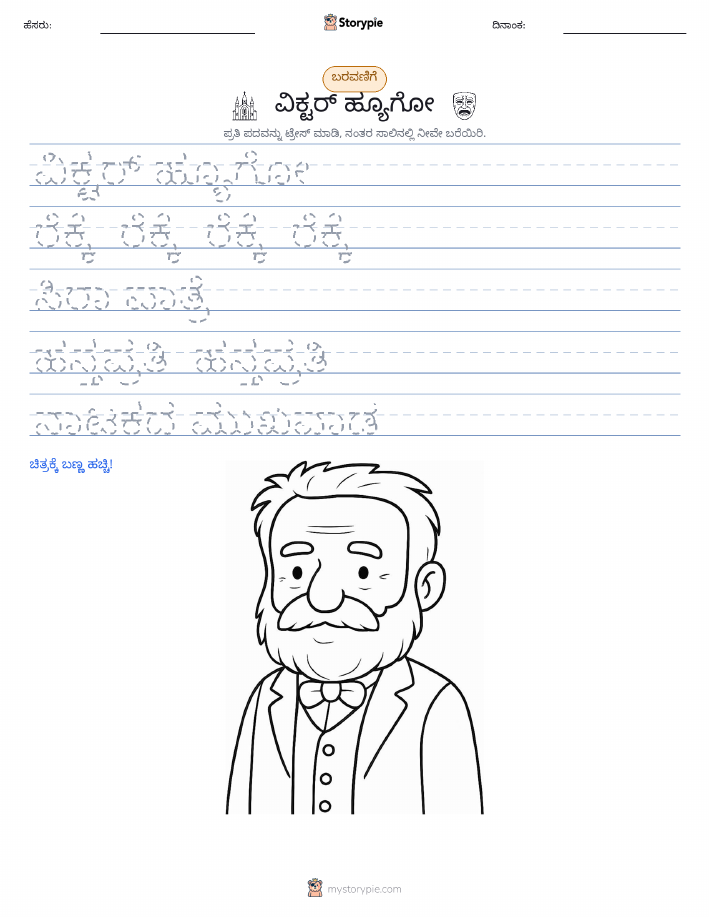 ಹೆಸರು:
Storypie
ದಿನಾಂಕ:
ಬರವಣಿಗೆ
ವಿಕ್ಟರ್ ಹ್ಯೂಗೋ
ಪ್ರತಿ ಪದವನ್ನು ಟ್ರೇಸ್ ಮಾಡಿ, ನಂತರ ಸಾಲಿನಲ್ಲಿ ನೀವೇ ಬರೆಯಿರಿ.
ವಿಕ್ಟರ್ ಹ್ಯೂಗೋ
ಬೆಕ್ಕಿ ಬೆಕ್ಕಿ ಬೆಕ್ಕಿ ಬೆಕ್ಕಿ
ಸಿರಾ ಪಾತ್ರೆ
ಹಸ್ತಪ್ರತಿ ಹಸ್ತಪ್ರತಿ
ನಾಟಕದ ಮುಖವಾಡ
ಚಿತ್ರಕ್ಕೆ ಬಣ್ಣ ಹಚ್ಚಿ!
mystorypie.com